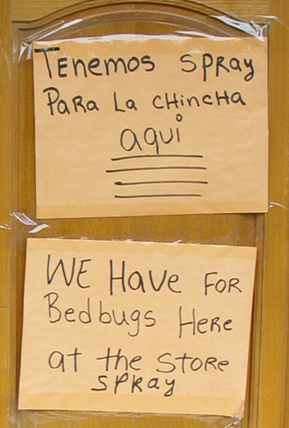 Tenemos SPRay
PaRa La CHinCHa
aqui
WE Have FOR
Bedbugs HeRe
at the STORe
SPRay